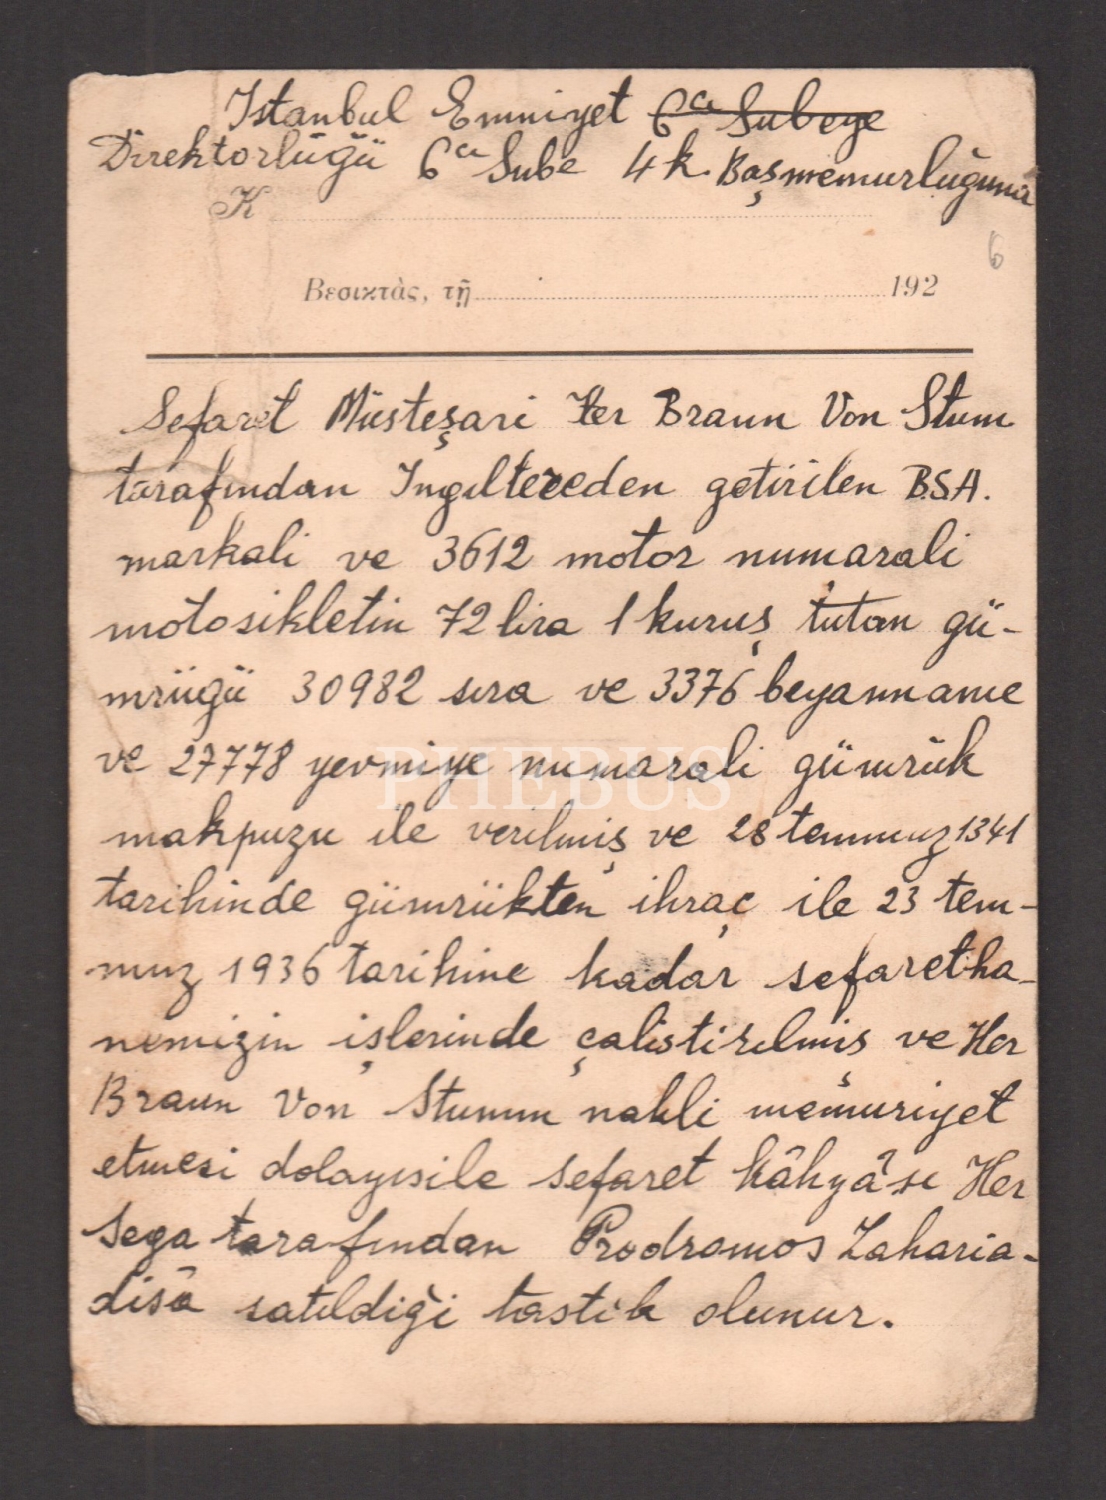 Istanbul Emniyet 6cı Şubeye
Direktorlüğü 6cı Şube 4 k. Başmemurluğuna
K
6
Βεσικτὰς, τῇ 192
Sefaret Müsteşari Her Braun Von Stum
tarafından Ingıltereden getirilen B.S.A.
markali ve 3612 motor numarali
motosikletin 72 lira 1 kuruş tutan gü-
mrügü 30982 sıra ve 3376 beyanname
ve 27778 yevmiye numarali gümrük
makpuzu ile verilmiş ve 28 temmuz 1341
tarihinde gümrükten ihraç ile 23 tem-
muz 1936 tarihine kadar sefaretha-
nemizin işlerinde çalistirılmiş ve Her
Braun Von Stumm nakli memuriyet
etmesi dolayısile sefaret kâhyâsı Her
Sega tarafından Prodromos Zaharia-
disa satıldiği tastik olunur.
PHEBUS